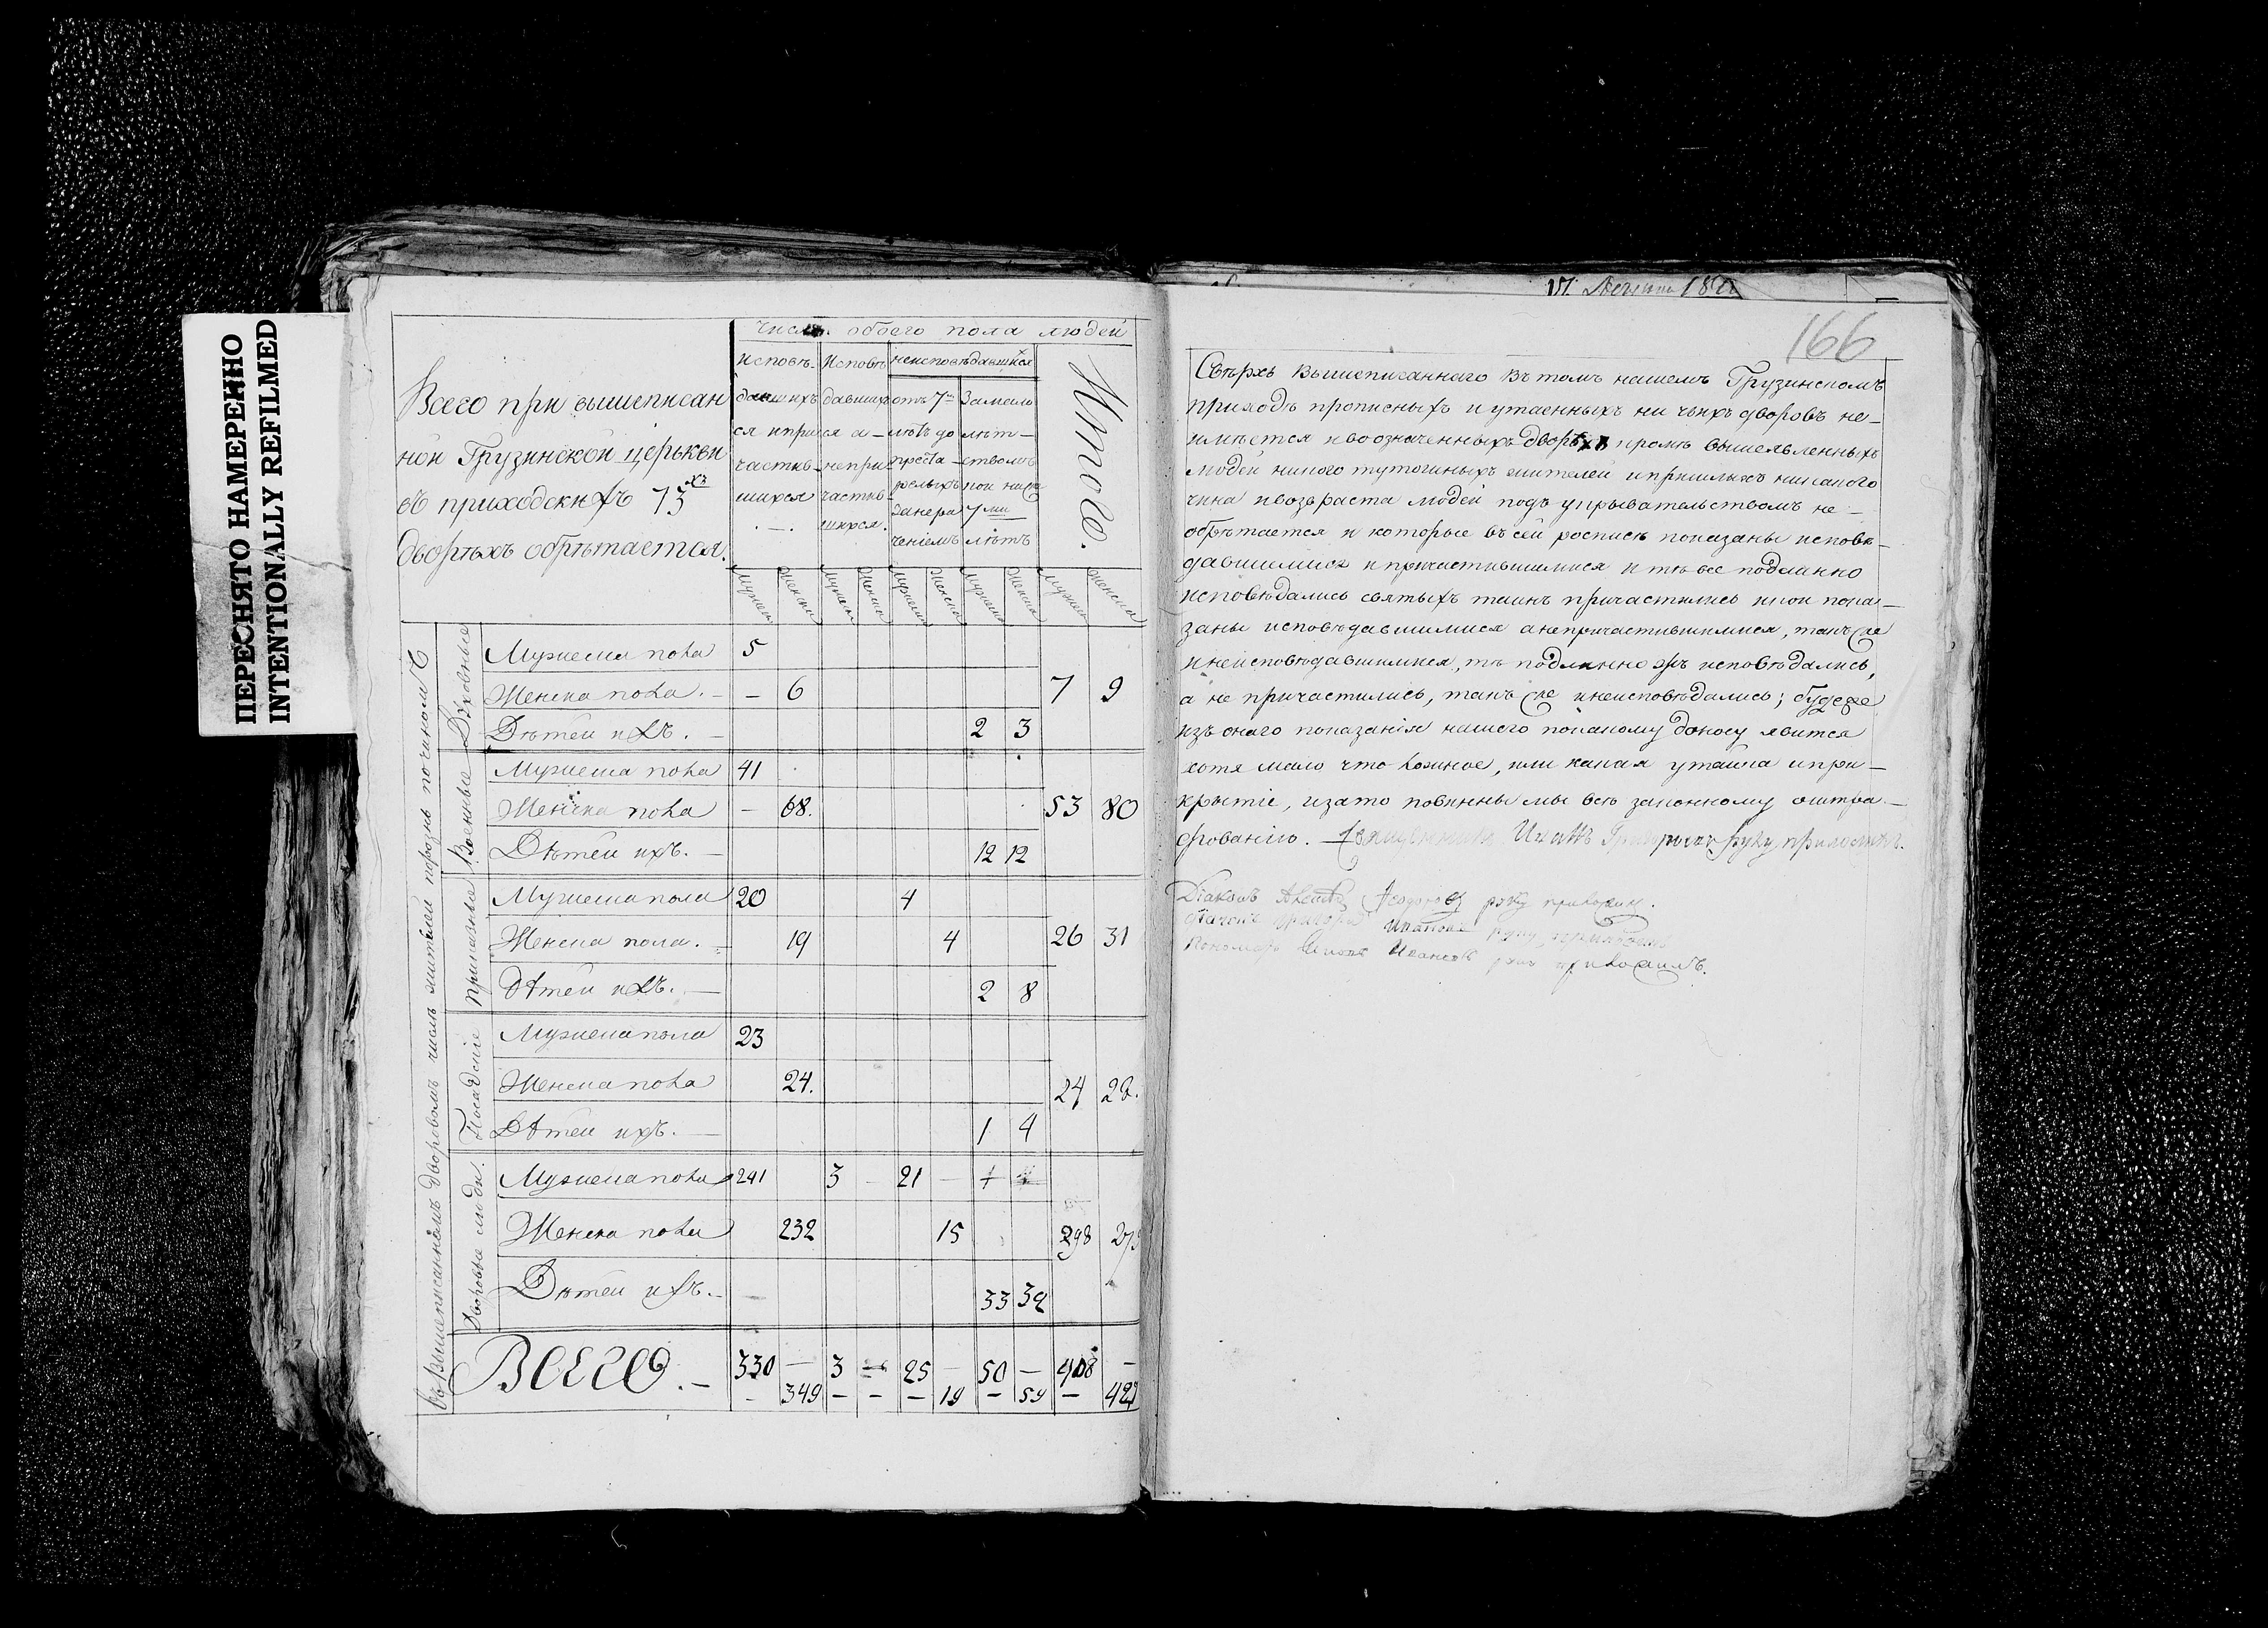 ПЕРЕСНЯТО НАМЕРЕННО
INTENTIONALLY REFILMED
166
числ. обоего пола людей
Всего при вышеписан
ной Грузинской церькви
въ приходскихъ 73хъ
дворѣхъ обрѣтается.
исповѣ-
давшихъ
ся и при
частив-
шихся
Исповѣ
давших
ся а-
непри
частив-
шихся.
неисповѣдавшихся
отъ 7и
лѣтъ до
преста-
релыхъ
за нера
ченіемъ
За мало
лѣт-
ствомъ
7ми
лѣтъ
Итого.
мужеск женски мужеск женска мужеска женска мужеска женска мужеск женска
въ вышеписанномъ дворовомъ числѣ жителей порознь по чиномъ
Духовные
Мужеска пола 5
Женска пола. - - 6 7 9
Дѣтей ихъ. - 2 3
Военные
Мужеска пола 41
Женска пола - 68. 53 80
Дѣтей ихъ. - 12 12
приказные
Мужеска пола 20 4
Женска пола. - 19 4 26 31
дѣтей ихъ. - 2 8
Посадскіе
Мужеска пола 23
Женска пола 24. 24 28.
Дѣтей ихъ. - 1 4
Дворовые люди.
Мужеска пола 241 3 - 21 -
Женска пола 232 15 298
Дѣтей ихъ. - 33 32
Всего. - 330 - 3 25 - 50 - 408 -
- 349 - - - 19 - 59 - 427
Свѣрхъ вышеписаннаго в томъ нашемъ Грузинскомъ
приходѣ прописныхъ и утаенныхъ ни чьихъ дворовъ не-
имѣется и во означенныхъ дворѣхъ кромѣ вышеявленныхъ
людей никого тутошныхъ жителей и пришлыхъ никакого
чина и возъраста людей подъ укрывательствомъ не-
обрѣтается и которые въ сей росписи показаны исповѣ-
давшимися и причастившимися и тѣ все подлинно
исповѣдались святыхъ таинъ причастились и кои пока-
заны исповѣдавшимися а непричастившимися, такъ же
и неисповѣдавшимися, тѣ подлинно жъ исповѣдались,
а не причастились, такъ же и неисповѣдались; буде же
изъ онаго показанія нашего по какому доносу явится
хотя мало что ложное, или какая утайка и при-
крытіе, и за то повинны мы всѣ законному оштра-
фованію. Священникъ Иоаннъ Григорьевъ руку приложилъ.
Діаконъ Феодоровъ руку приложилъ.
Дьячокъ Григорей Ивановъ руку приложилъ
Пономарь Ивановъ руку приложилъ.